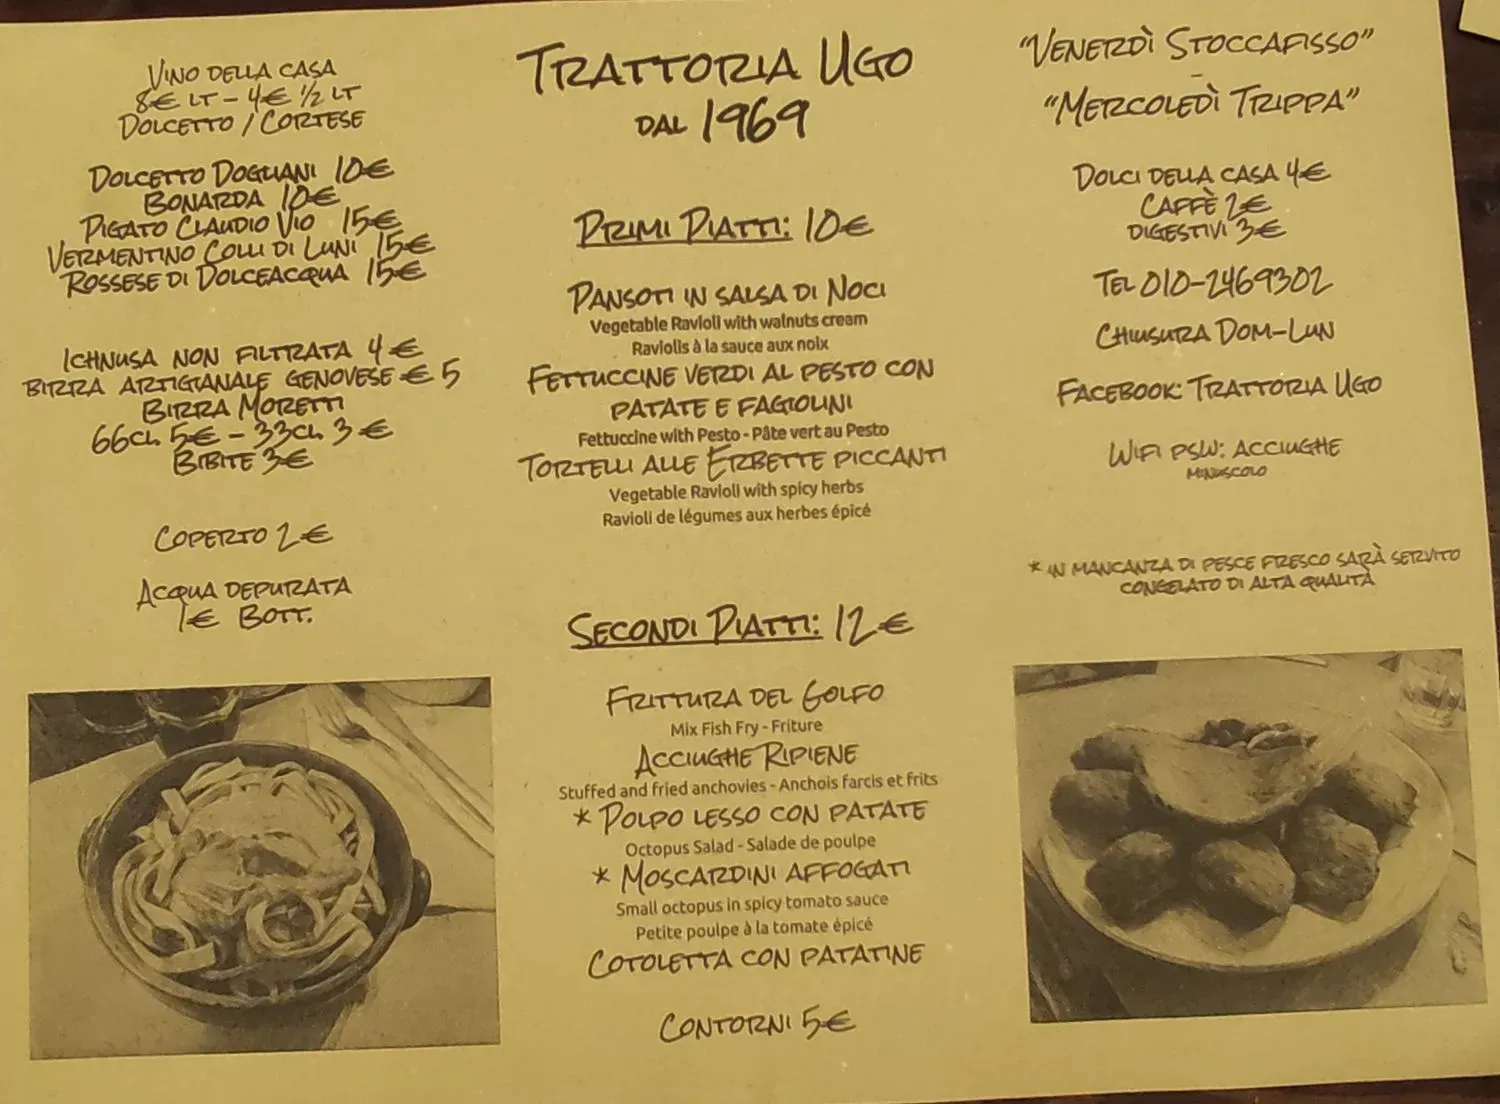 VINO DELLA CASA
8€ LT - 4€ ½ LT
DOLCETTO / CORTESE
DOLCETTO DOGLIANI 10€
BONARDA 10€
PIGATO CLAUDIO VIO 15€
VERMENTINO COLLI DI LUNI 15€
ROSSESE DI DOLCEACQUA 15€
ICHNUSA NON FILTRATA 4€
BIRRA ARTIGIANALE GENOVESE € 5
BIRRA MORETTI
66CL 5€ - 33CL 3€
BIBITE 3€
COPERTO 2€
ACQUA DEPURATA
1€ BOTT.
TRATTORIA UGO
DAL 1969
PRIMI PIATTI: 10€
PANSOTI IN SALSA DI NOCI
Vegetable Ravioli with walnuts cream
Raviolis à la sauce aux noix
FETTUCCINE VERDI AL PESTO CON
PATATE E FAGIOLINI
Fettuccine with Pesto - Pâte vert au Pesto
TORTELLI ALLE ERBETTE PICCANTI
Vegetable Ravioli with spicy herbs
Ravioli de légumes aux herbes épicé
SECONDI PIATTI: 12€
FRITTURA DEL GOLFO
Mix Fish Fry - Friture
ACCIUGHE RIPIENE
Stuffed and fried anchovies - Anchois farcis et frits
* POLPO LESSO CON PATATE
Octopus Salad - Salade de poulpe
* MOSCARDINI AFFOGATI
Small octopus in spicy tomato sauce
Petite poulpe à la tomate épicé
COTOLETTA CON PATATINE
CONTORNI 5€
"VENERDÌ STOCCAFISSO"
-
"MERCOLEDÌ TRIPPA"
DOLCI DELLA CASA 4€
CAFFÈ 2€
DIGESTIVI 3€
TEL 010-2469302
CHIUSURA DOM-LUN
FACEBOOK: TRATTORIA UGO
WIFI PSW: ACCIUGHE
MINUSCOLO
* IN MANCANZA DI PESCE FRESCO SARÀ SERVITO
CONGELATO DI ALTA QUALITÀ